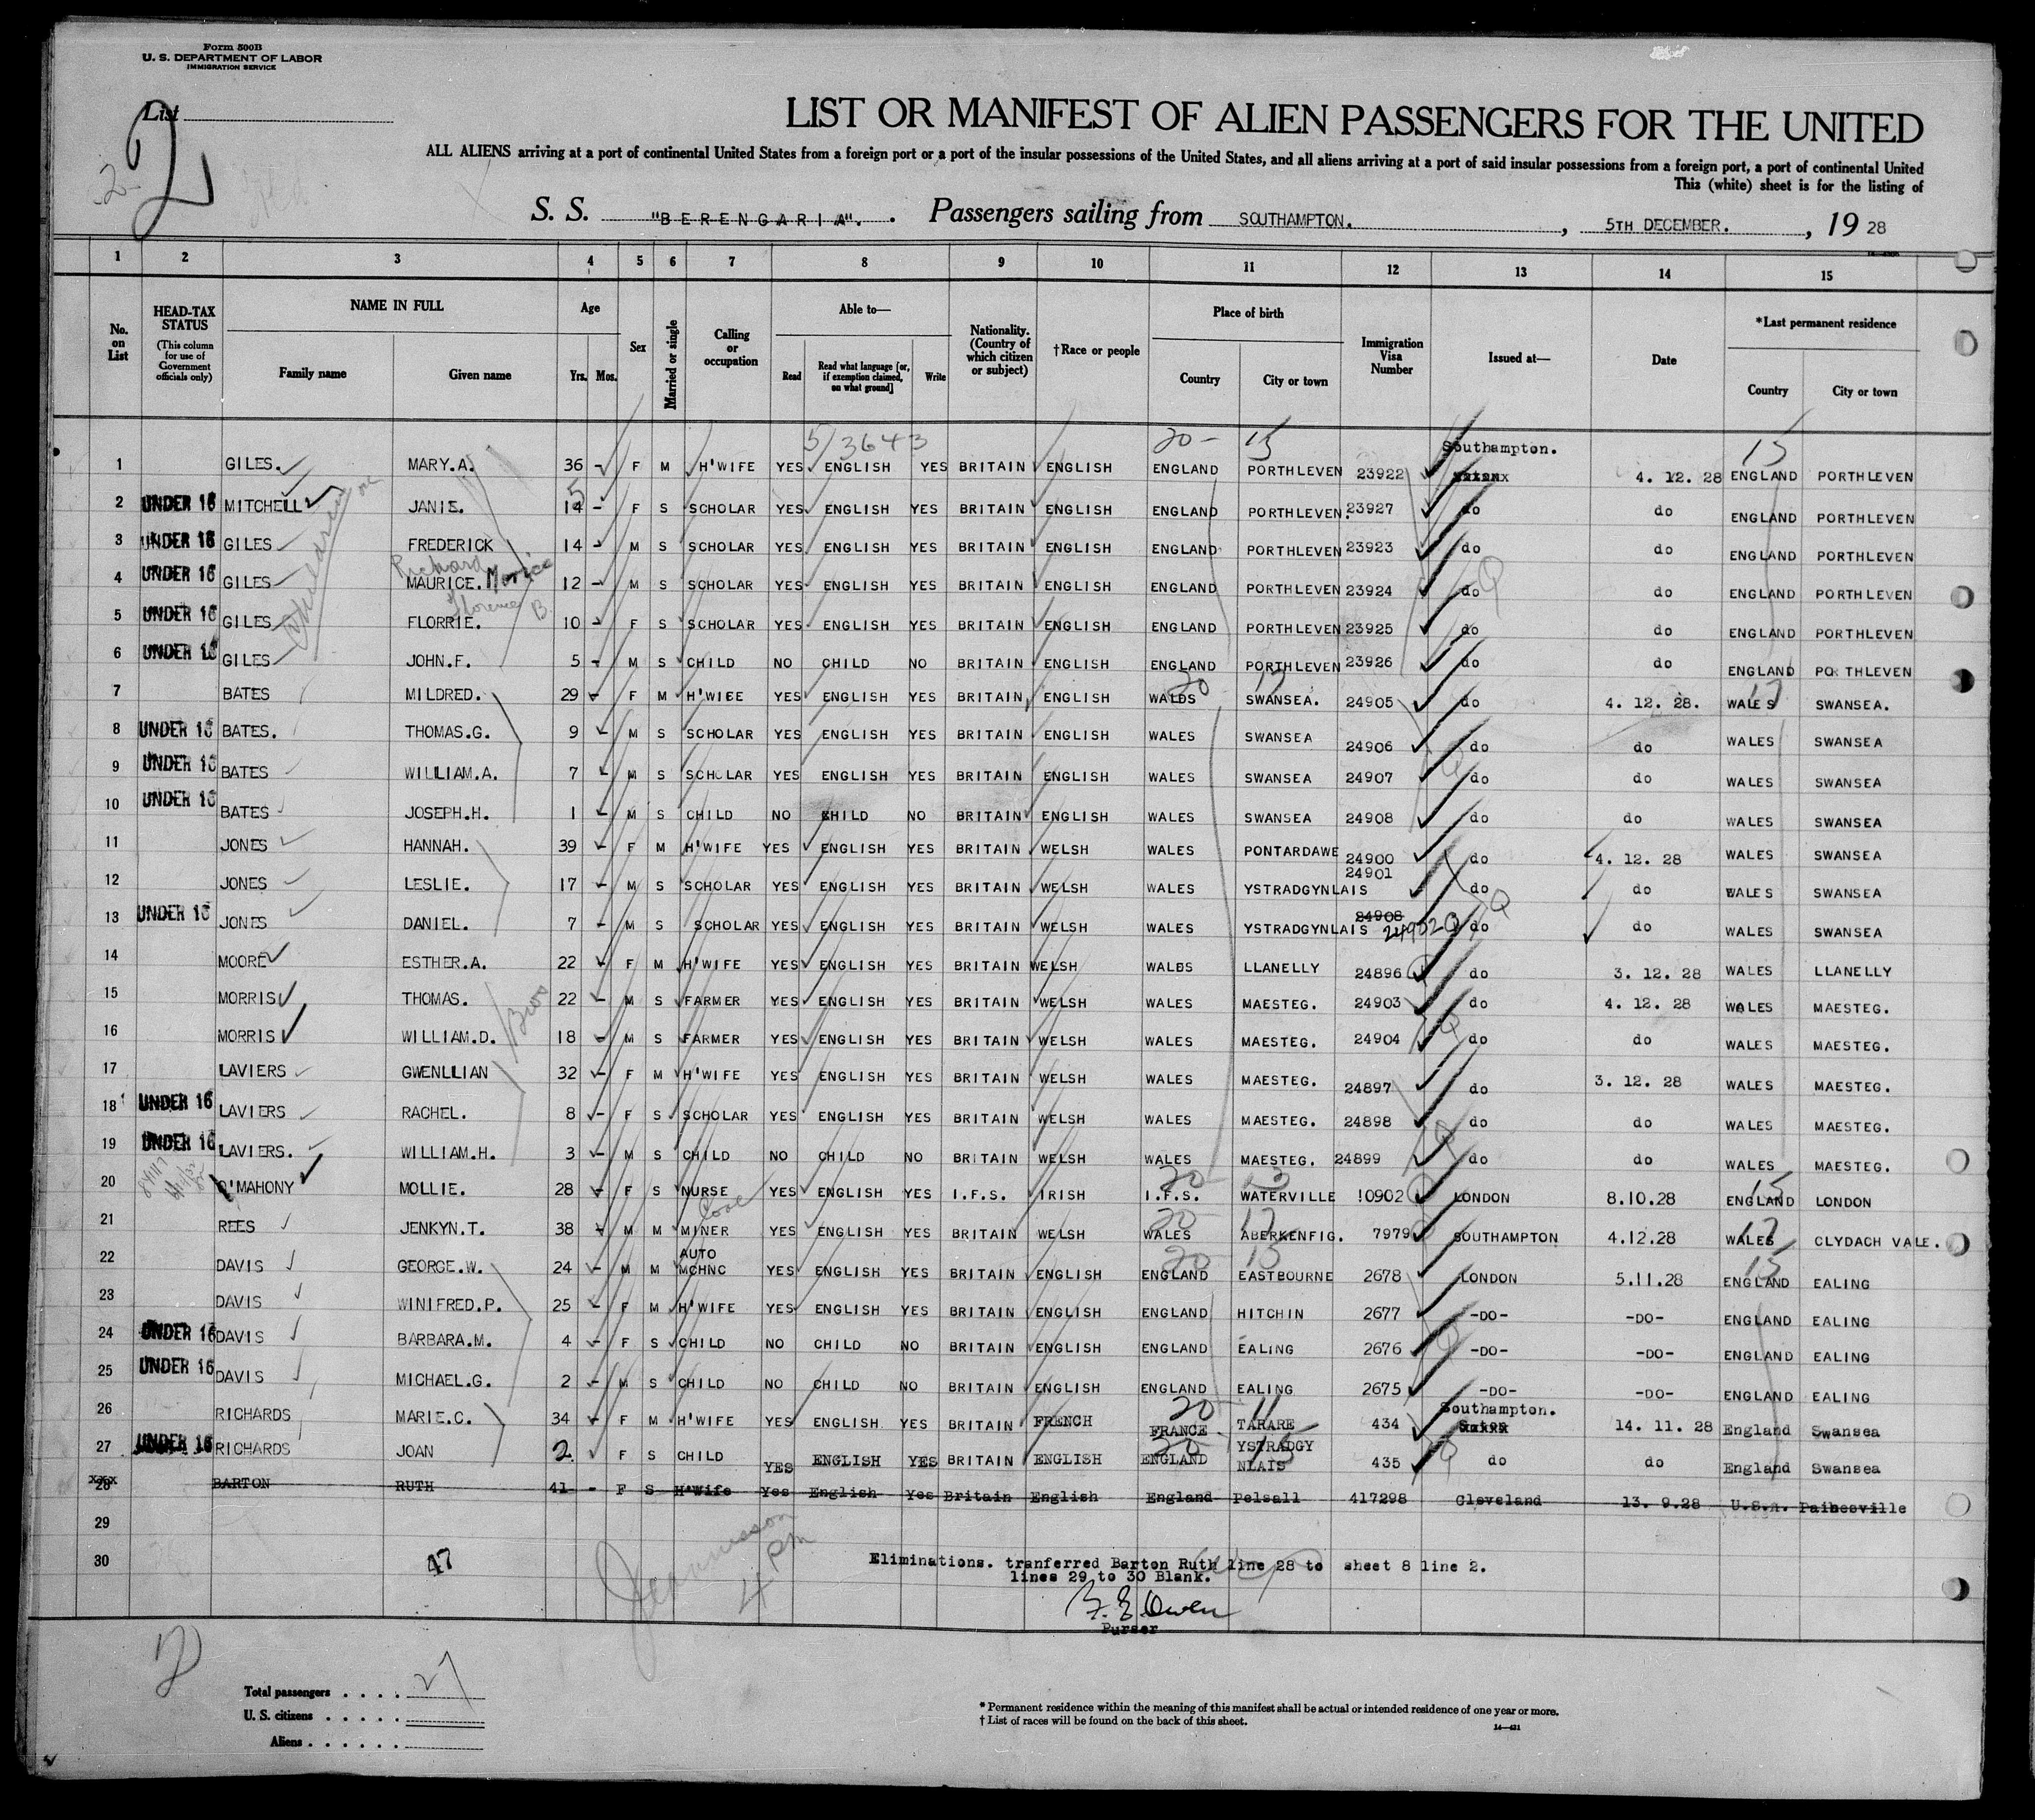 Form 500B
U. S. DEPARTMENT OF LABOR
IMMIGRATION SERVICE
List
2
LIST OR MANIFEST OF ALIEN PASSENGERS FOR THE UNITED
ALL ALIENS arriving at a port of continental United States from a foreign port or a port of the insular possessions of the United States, and all aliens arriving at a port of said insular possessions from a foreign port, a port of continental United
This (white) sheet is for the listing of
S. S. "BERENGARIA". Passengers sailing from SOUTHAMPTON. , 5TH DECEMBER. , 19 28
1 2 3 4 5 6 7 8 9 10 11 12 13 14 15
No. on List
HEAD-TAX STATUS (This column for use of Government officials only)
NAME IN FULL Family name Given name
Age Yrs. Mos.
Sex
Married or single
Calling or occupation
Able to— Read Read what language [or, if exemption claimed, on what ground] Write
Nationality. (Country of which citizen or subject)
†Race or people
Place of birth Country City or town
Immigration Visa Number
Issued at—
Date
*Last permanent residence Country City or town
5/3643 20- 15 15
Southampton.
1 GILES. MARY.A. 36 - F M H'WIFE YES ENGLISH YES BRITAIN ENGLISH ENGLAND PORTHLEVEN 23922 4. 12. 28 ENGLAND PORTHLEVEN
2 UNDER 16 MITCHELL JANIE. 14 - F S SCHOLAR YES ENGLISH YES BRITAIN ENGLISH ENGLAND PORTHLEVEN. 23927 do do ENGLAND PORTHLEVEN
3 UNDER 16 GILES FREDERICK 14 - M S SCHOLAR YES ENGLISH YES BRITAIN ENGLISH ENGLAND PORTHLEVEN 23923 do do ENGLAND PORTHLEVEN
Richard
4 UNDER 16 GILES MAURICE. 12 - M S SCHOLAR YES ENGLISH YES BRITAIN ENGLISH ENGLAND PORTHLEVEN 23924 do do ENGLAND PORTHLEVEN
Florence B.
5 UNDER 16 GILES FLORRIE. 10 - F S SCHOLAR YES ENGLISH YES BRITAIN ENGLISH ENGLAND PORTHLEVEN 23925 do do ENGLAND PORTHLEVEN
6 UNDER 16 GILES JOHN.F. 5 - M S CHILD NO CHILD NO BRITAIN ENGLISH ENGLAND PORTHLEVEN 23926 do do ENGLAND PORTHLEVEN
7 BATES MILDRED. 29 - F M H'WIFE YES ENGLISH YES BRITAIN ENGLISH WALES SWANSEA. 24905 do 4. 12. 28. WALES SWANSEA.
8 UNDER 16 BATES. THOMAS.G. 9 - M S SCHOLAR YES ENGLISH YES BRITAIN ENGLISH WALES SWANSEA 24906 do do WALES SWANSEA
9 UNDER 16 BATES WILLIAM.A. 7 - M S SCHOLAR YES ENGLISH YES BRITAIN ENGLISH WALES SWANSEA 24907 do do WALES SWANSEA
10 UNDER 16 BATES JOSEPH.H. 1 - M S CHILD NO CHILD NO BRITAIN ENGLISH WALES SWANSEA 24908 do do WALES SWANSEA
11 JONES HANNAH. 39 - F M H'WIFE YES ENGLISH YES BRITAIN WELSH WALES PONTARDAWE 24900 do 4. 12. 28 WALES SWANSEA
12 JONES LESLIE. 17 - M S SCHOLAR YES ENGLISH YES BRITAIN WELSH WALES YSTRADGYNLAIS 24901 do do WALES SWANSEA
13 UNDER 16 JONES DANIEL. 7 - M S SCHOLAR YES ENGLISH YES BRITAIN WELSH WALES YSTRADGYNLAIS 24908 24902 do do WALES SWANSEA
14 MOORE ESTHER.A. 22 - F M H'WIFE YES ENGLISH YES BRITAIN WELSH WALES LLANELLY 24896 do 3. 12. 28 WALES LLANELLY
15 MORRIS THOMAS. 22 - M S FARMER YES ENGLISH YES BRITAIN WELSH WALES MAESTEG. 24903 do 4. 12. 28 WALES MAESTEG.
Bros
16 MORRIS WILLIAM.D. 18 - M S FARMER YES ENGLISH YES BRITAIN WELSH WALES MAESTEG. 24904 do do WALES MAESTEG.
17 LAVIERS GWENLLIAN 32 - F M H'WIFE YES ENGLISH YES BRITAIN WELSH WALES MAESTEG. 24897 do 3. 12. 28 WALES MAESTEG.
18 UNDER 16 LAVIERS RACHEL. 8 - F S SCHOLAR YES ENGLISH YES BRITAIN WELSH WALES MAESTEG. 24898 do do WALES MAESTEG.
19 UNDER 16 LAVIERS. WILLIAM.H. 3 - M S CHILD NO CHILD NO BRITAIN WELSH WALES MAESTEG. 24899 do do WALES MAESTEG.
20 O'MAHONY MOLLIE. 28 - F S NURSE YES ENGLISH YES I.F.S. IRISH I.F.S. WATERVILLE 10902 LONDON 8.10.28 ENGLAND LONDON
Coal
21 REES JENKYN.T. 38 - M M MINER YES ENGLISH YES BRITAIN WELSH WALES ABERKENFIG. 7979 SOUTHAMPTON 4.12.28 WALES CLYDACH VALE.
22 DAVIS GEORGE.W. 24 - M M AUTO MCHNC YES ENGLISH YES BRITAIN ENGLISH ENGLAND EASTBOURNE 2678 LONDON 5.11.28 ENGLAND EALING
23 DAVIS WINIFRED.P. 25 - F M H'WIFE YES ENGLISH YES BRITAIN ENGLISH ENGLAND HITCHIN 2677 -DO- -DO- ENGLAND EALING
24 UNDER 16 DAVIS BARBARA.M. 4 - F S CHILD NO CHILD NO BRITAIN ENGLISH ENGLAND EALING 2676 -DO- -DO- ENGLAND EALING
25 UNDER 16 DAVIS MICHAEL.G. 2 - M S CHILD NO CHILD NO BRITAIN ENGLISH ENGLAND EALING 2675 -DO- -DO- ENGLAND EALING
26 RICHARDS MARIE.C. 34 - F M H'WIFE YES ENGLISH YES BRITAIN FRENCH FRANCE TARARE 434 Southampton. 14. 11. 28 England Swansea
27 UNDER 16 RICHARDS JOAN 2 F S CHILD YES ENGLISH YES BRITAIN ENGLISH ENGLAND YSTRADGY NLAIS 435 do do England Swansea
xxx
28 BARTON RUTH 41 - F S H'Wife Yes English Yes Britain English England Pelsall 417298 Cleveland 13. 9.28 U.S.A. Painesville
29
30 47
Eliminations. tranferred Barton Ruth line 28 to sheet 8 line 2.
lines 29 to 30 Blank.
4 PM
Owen
Purser
Total passengers . . . . 27
U. S. citizens . . . . .
Aliens . . . . . .
* Permanent residence within the meaning of this manifest shall be actual or intended residence of one year or more.
† List of races will be found on the back of this sheet.
14—421